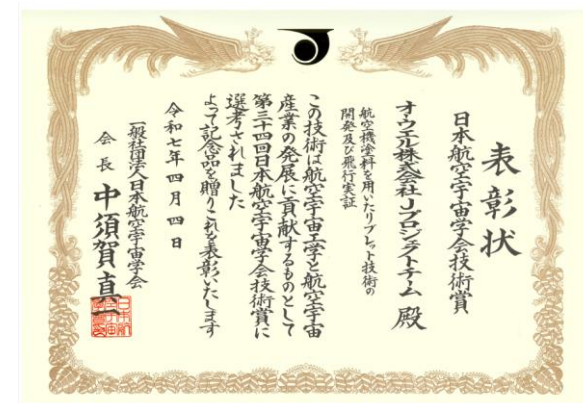 表彰状
日本航空宇宙学会技術賞
オーウエル株式会社Jプロジェクトチーム 殿
航空機塗料を用いたリブレット技術の
開発及び飛行実証
この技術は航空宇宙工学と航空宇宙
産業の発展に貢献するものとして
第三十四回日本航空宇宙学会技術賞に
選考されました
よって記念品を贈りこれを表彰いたします
令和七年四月四日
一般社団法人日本航空宇宙学会
会長 中須賀真一